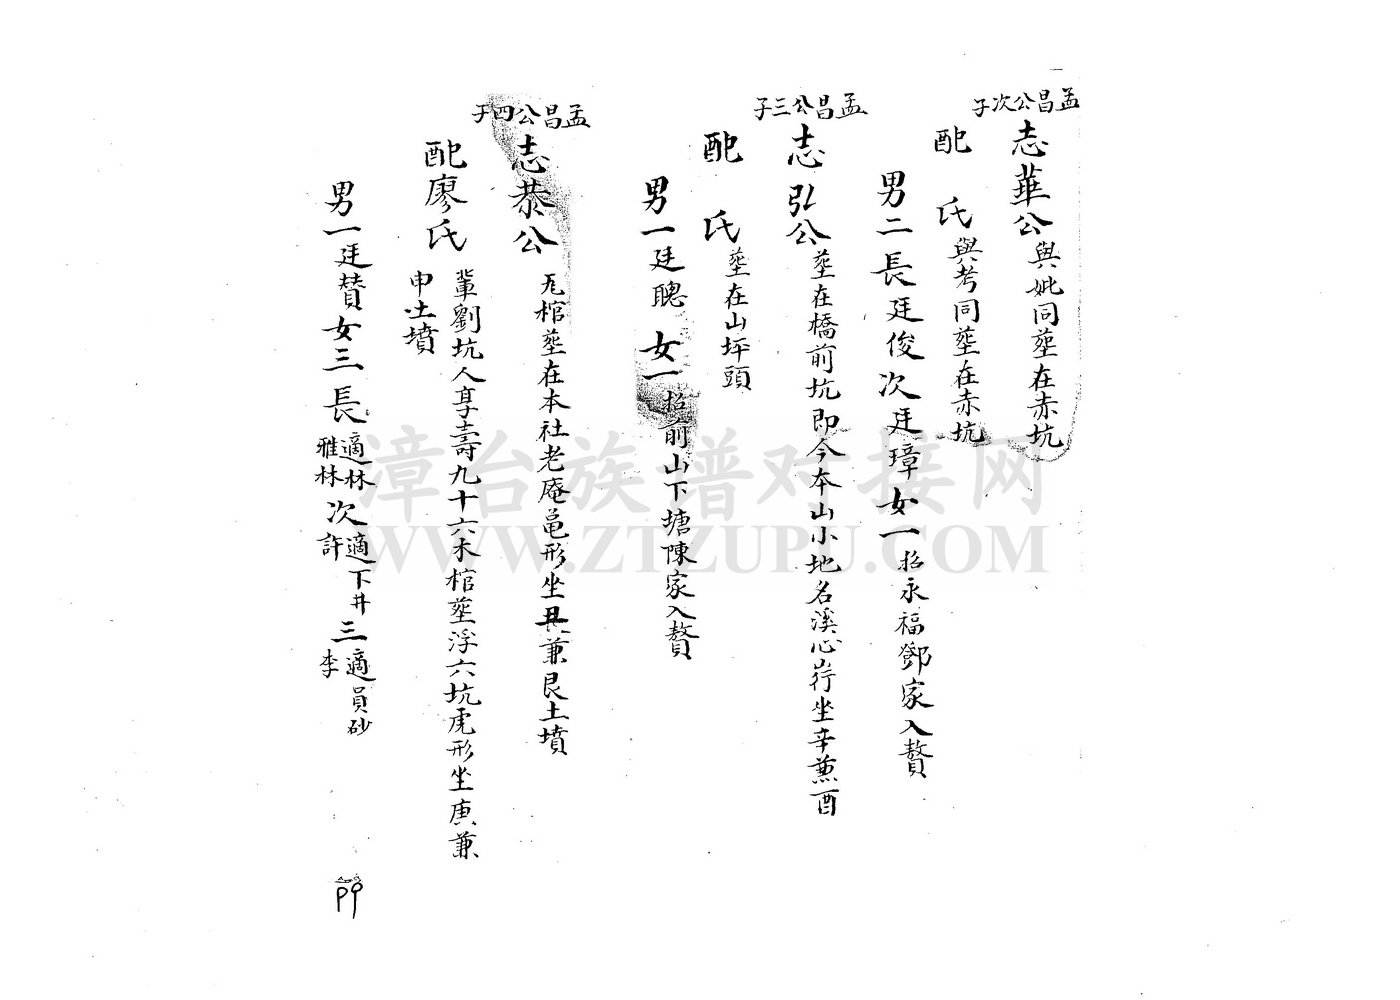 孟昌公次子
志華公 與妣同塟在赤坑
配 氏 與考同塟在赤坑
男二長廷俊次廷璋女一招永福鄧家入贅
孟昌公三子
志弘公 塟在橋前坑即今本山小地名溪心崎坐辛兼酉
配 氏 塟在山坪頭
男一廷聰 女一招前山下塘陳家入贅
孟昌公四子
志恭公 瓦棺塟在本社老庵黽形坐丑兼艮土墳
配廖氏 輩劉坑人享壽九十六木棺塟浮六坑虎形坐庚兼
申土墳
男一廷贊女三長適林雅林次適下井許三適員砂李
P9
漳台族谱对接网
WWW.ZTZUPU.COM